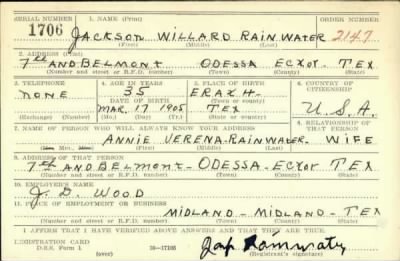 SERIAL NUMBER 1. NAME (Print) ORDER NUMBER
1706 JACKSON WILLARD RAINWATER 2147
(First) (Middle) (Last)
2. ADDRESS (Print)
7th AND BELMONT ODESSA ECTOR TEX
(Number and street or R. F. D. number) (Town) (County) (State)
3. TELEPHONE 4. AGE IN YEARS 5. PLACE OF BIRTH 6. COUNTRY OF CITIZENSHIP
NONE 35 ERATH
DATE OF BIRTH (Town or county)
MAR. 17 1905 TEX U.S.A.
(Exchange) (Number) (Mo.) (Day) (Yr.) (State or country)
7. NAME OF PERSON WHO WILL ALWAYS KNOW YOUR ADDRESS 8. RELATIONSHIP OF THAT PERSON
ANNIE VERENA RAINWATER WIFE
(Mr., Mrs., Miss) (First) (Middle) (Last)
9. ADDRESS OF THAT PERSON
7th AND BELMONT - ODESSA - ECTOR TEX
(Number and street or R. F. D. number) (Town) (County) (State)
10. EMPLOYER'S NAME
J. D. WOOD
11. PLACE OF EMPLOYMENT OR BUSINESS
MIDLAND - MIDLAND - TEX
(Number and street or R. F. D. number) (Town) (County) (State)
I AFFIRM THAT I HAVE VERIFIED ABOVE ANSWERS AND THAT THEY ARE TRUE.
REGISTRATION CARD
D. S. S. Form 1 16-17105
(over) (Registrant's signature)